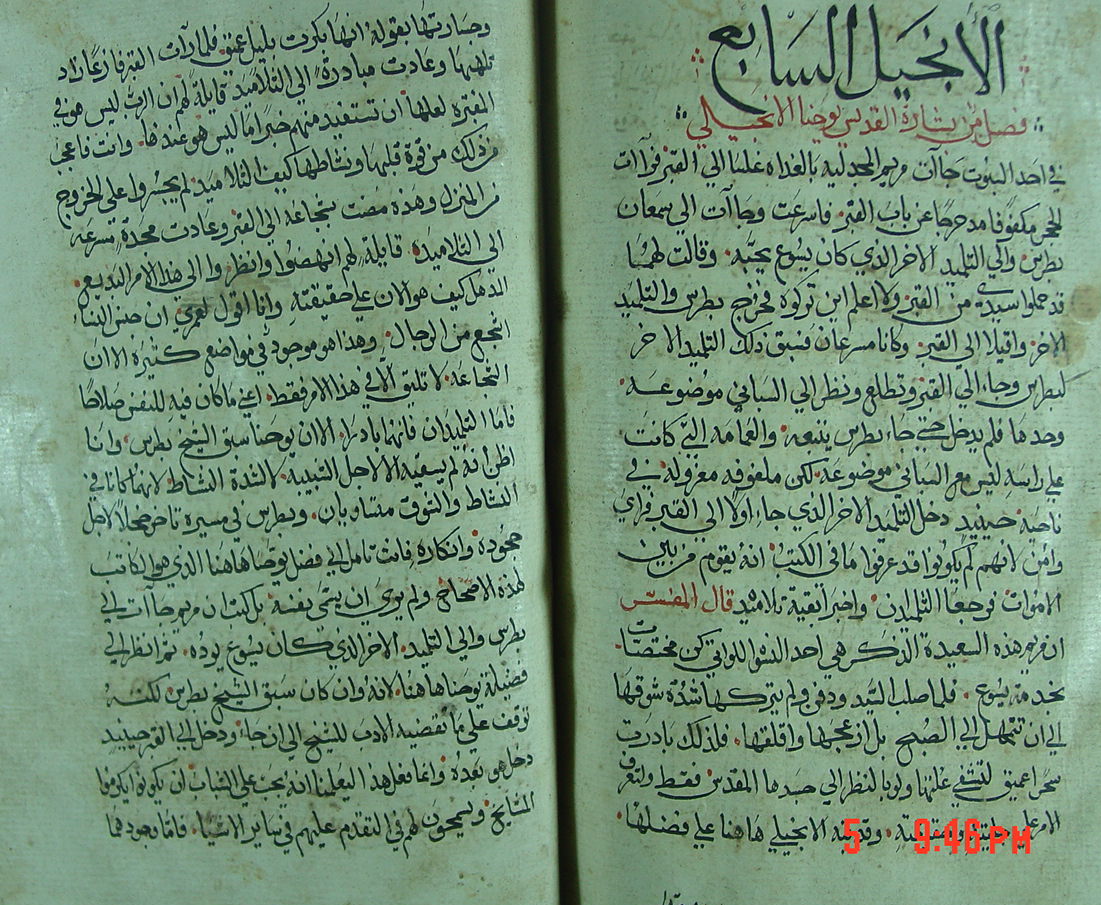 الانجيل السابع
فصل من بشارة القديس يوحنا الانجيلي
في احد السبوت جاآت مريم المجدلية بالغداه غلسا الي القبر فرآات
الحجر مكفوفا مدحرجا عن باب القبر فاسرعت وجاآت الي سمعان
بطرس والي التلميد الاخر الدي كان يسوع يحبه وقالت لهما
قد حملوا سيدي من القبر ولا اعلم اين تركوه فخرج بطرس والتلميد
الاخر واقبلا الي القبر وكانا مسرعان فسبق دلك التلميد الاخر
لبطرس وجاء الي القبر وتطلع ونظر الي السباني موضوعه
وحدها فلم يدخل حتي جاء بطرس يتبعه والعمامه التي كانت
علي راسه ليس مع السباني موضوعة لكن ملفوفه معزوله في
ناحية حينيد دخل التلميد الاخر الدي جاء اولا الي القبر فراي
وامن لانهم لم يكونوا قد عرفوا ما في الكتب انه يقوم من بين
الاموات فرجعا التلميدين واخبرا بقية تلاميد قال المفسر
ان مريم هذه السعيدة الدكر هي احد النسوا اللواتي كن مختصات
بخدمة يسوع فلما صلب السيد ودفن ولم يتركها شدة شوقها
الي ان تتمهل الي الصبح بل ازعجها واقلقها فلدلك بادرت
سحرا عميق لتشفي غلتها ولو بالنظر الي جسدها المقدس فقط ولتعرف
الامر علي وقدمه الانجيلي هاهنا علي فضلها
5 9:46 PM
وجسارتها بقوله انها بكرت بليل عميق فلما رآت القبر فارغا زاد
تلهبها وعادت مبادرة الي التلاميد قايلة لهم ان الرب ليس هو في
القبره لعلها ان تستفيد منهم خبرا ما ليس هو عندها وانت فاعجب
من دلك من قوة قلبها ونشاطها كيف التلاميد لم يجسروا علي الخروج
من المنزل وهذه مضت بشجاعة الي القبر وعادت مجدة مسرعه
الي التلاميده قايلة لهم انهضوا وانظروا الي هذا الامر البديع
المدهل كيف هو الان علي حقيقته وانا اقول لعمري ان جنس النساء
اشجع من الرجال وهذا هو موجود في مواضع كثيرة الا ان
الشجاعة لا تليق الا في هذا الامر فقط اعني ما كان فيه للنفس صلاحا
فاما التلميدان فانهما بادرا الا ان يوحنا سبق الشيخ بطرس وانا
اظن انه لم يسبقه الا لاجل الشبيبة لا لشدة النشاط لانهما كانا في
النشاط والشوق متساويان وبطرس في مسيره تاخر خجلا لاجل
جحوده وانكاره فانت تامل الي فضل يوحنا هاهنا الذي هو الكاتب
لهذه الاصحاح ولم يوي ان يسمي نفسه بل كتب ان مريم جاآت الي
بطرس والي التلميد الاخر الدي كان يسوع يوده ثم انظر الي
فضيلة يوحنا هاهنا لانه وان كان سبق الشيخ بطرس لكنه
توقف علي ما تقضيه الادب للشيخ الي ان جاء ودخل الي القبر حينيد
دخل هو بعده وانما فعل هذا ليعلمنا انه يجب علي الشباب ان يكونوا يكرموا
المشايخ ويسمحون لهم في التقدم عليهم في ساير الاشياء فاما وجود هما